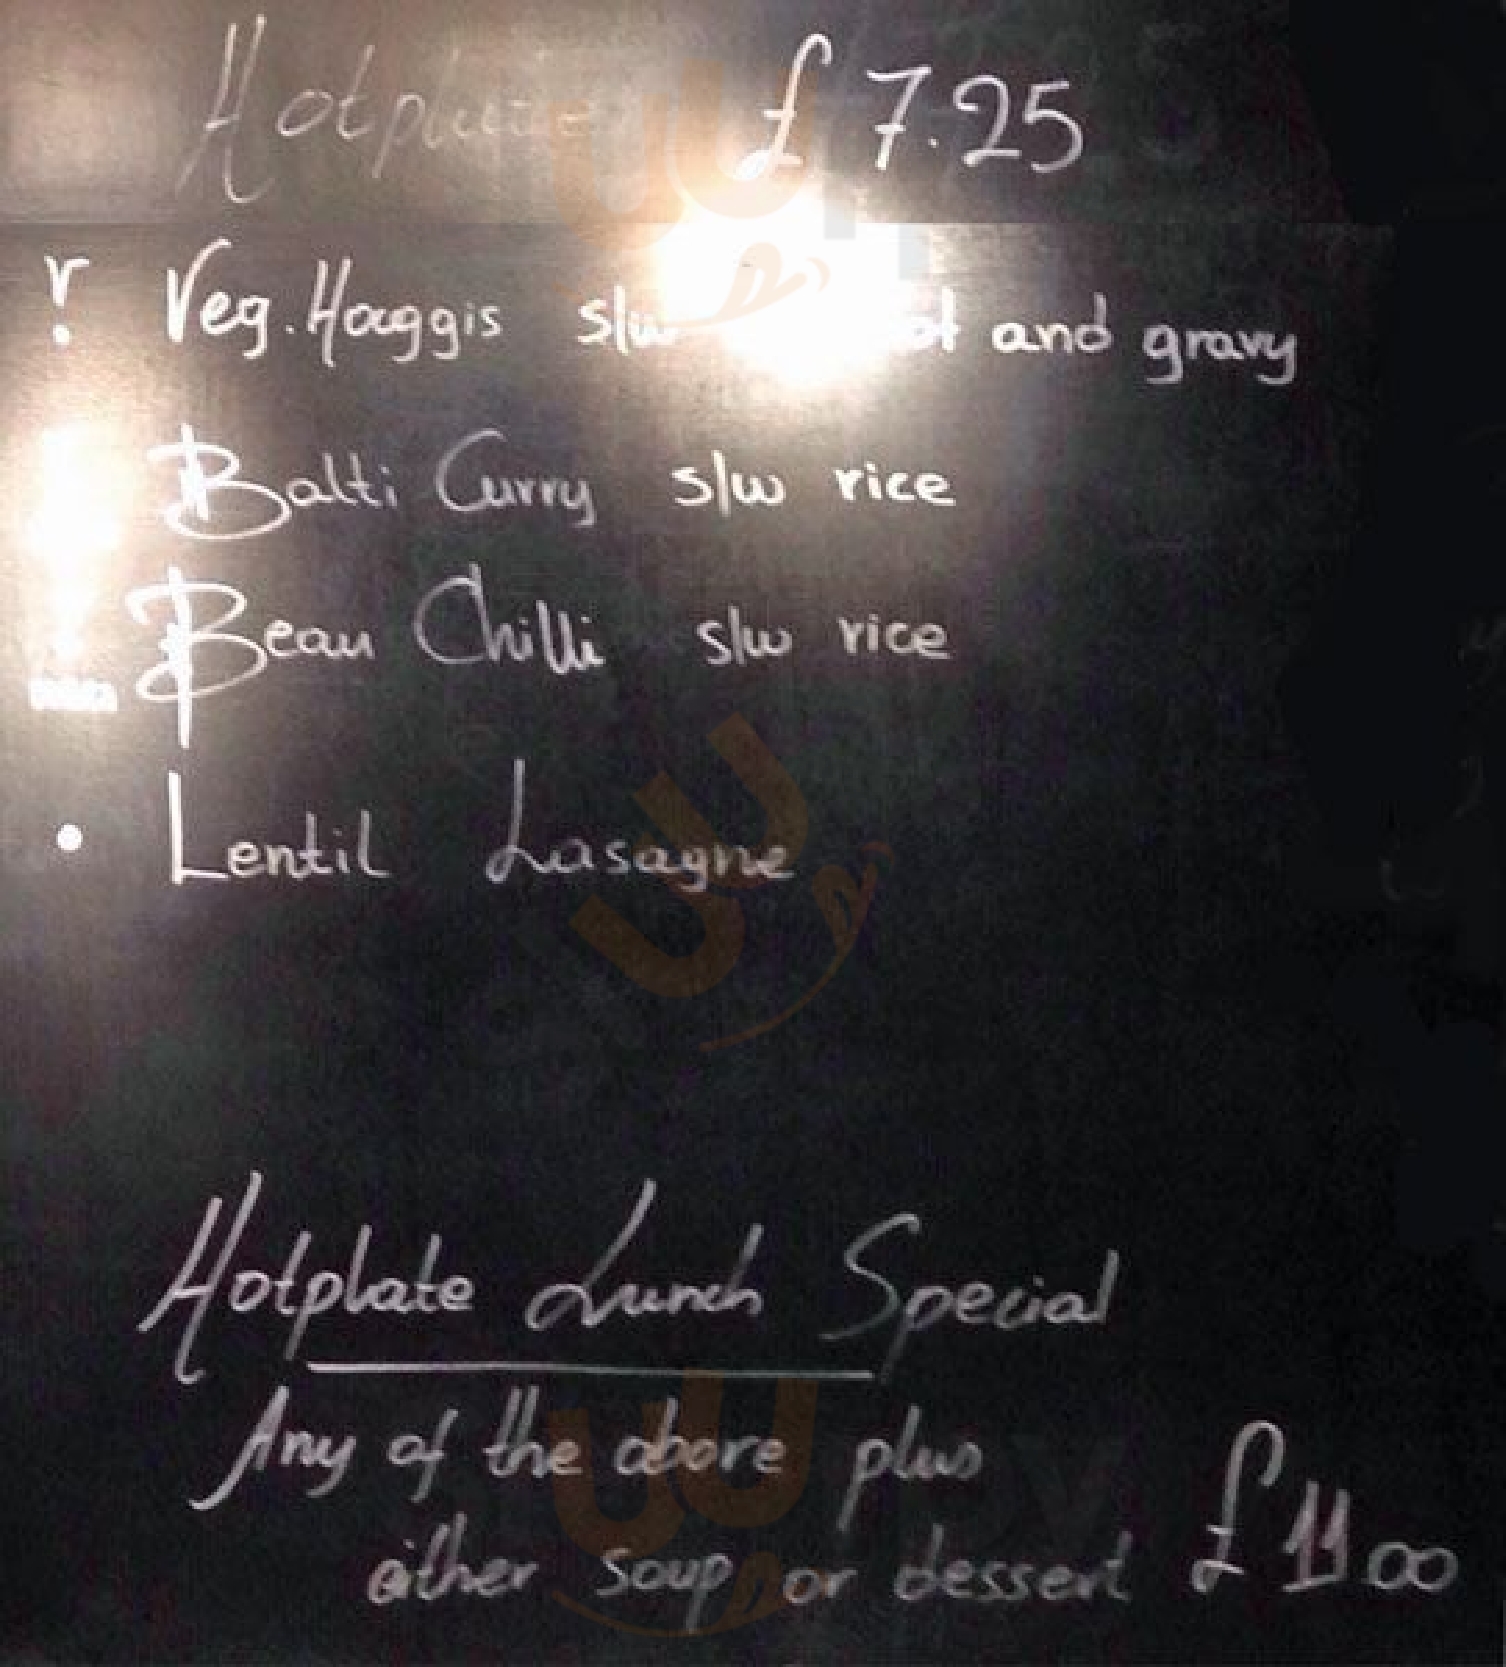 Hotplate £7.25
Veg. Haggis s/w and gravy
Balti Curry s/w rice
Bean Chilli s/w rice
• Lentil Lasagne
Hotplate Lunch Special
Any of the above plus
either soup or dessert £11.00